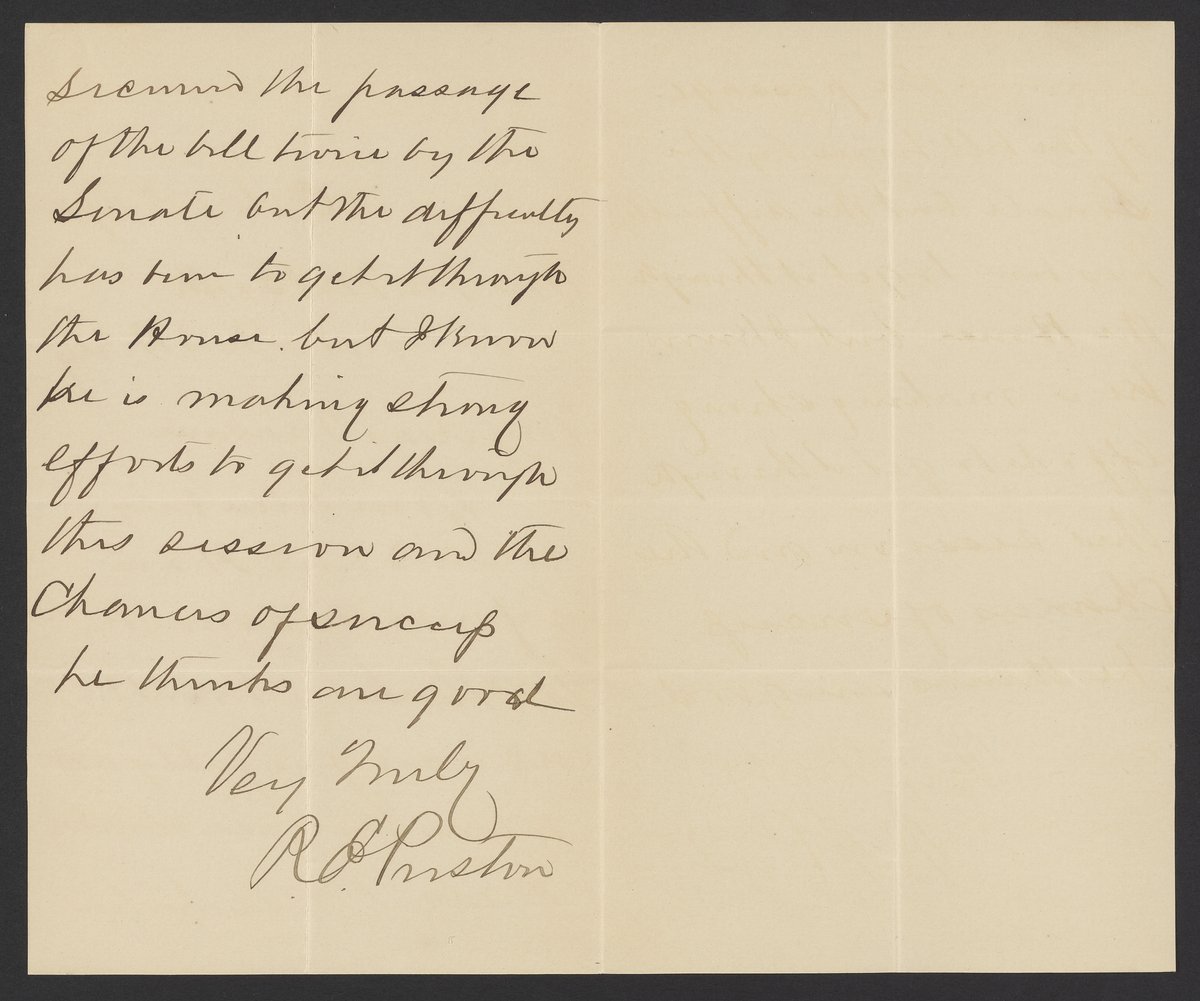 secured the passage
of the bill twice by the
Senate but the difficulty
has been to get it through
the House. but I know
he is making strong
efforts to get it through
this session and the
Chances of success
he thinks are good
Very Truly
R. E. Preston